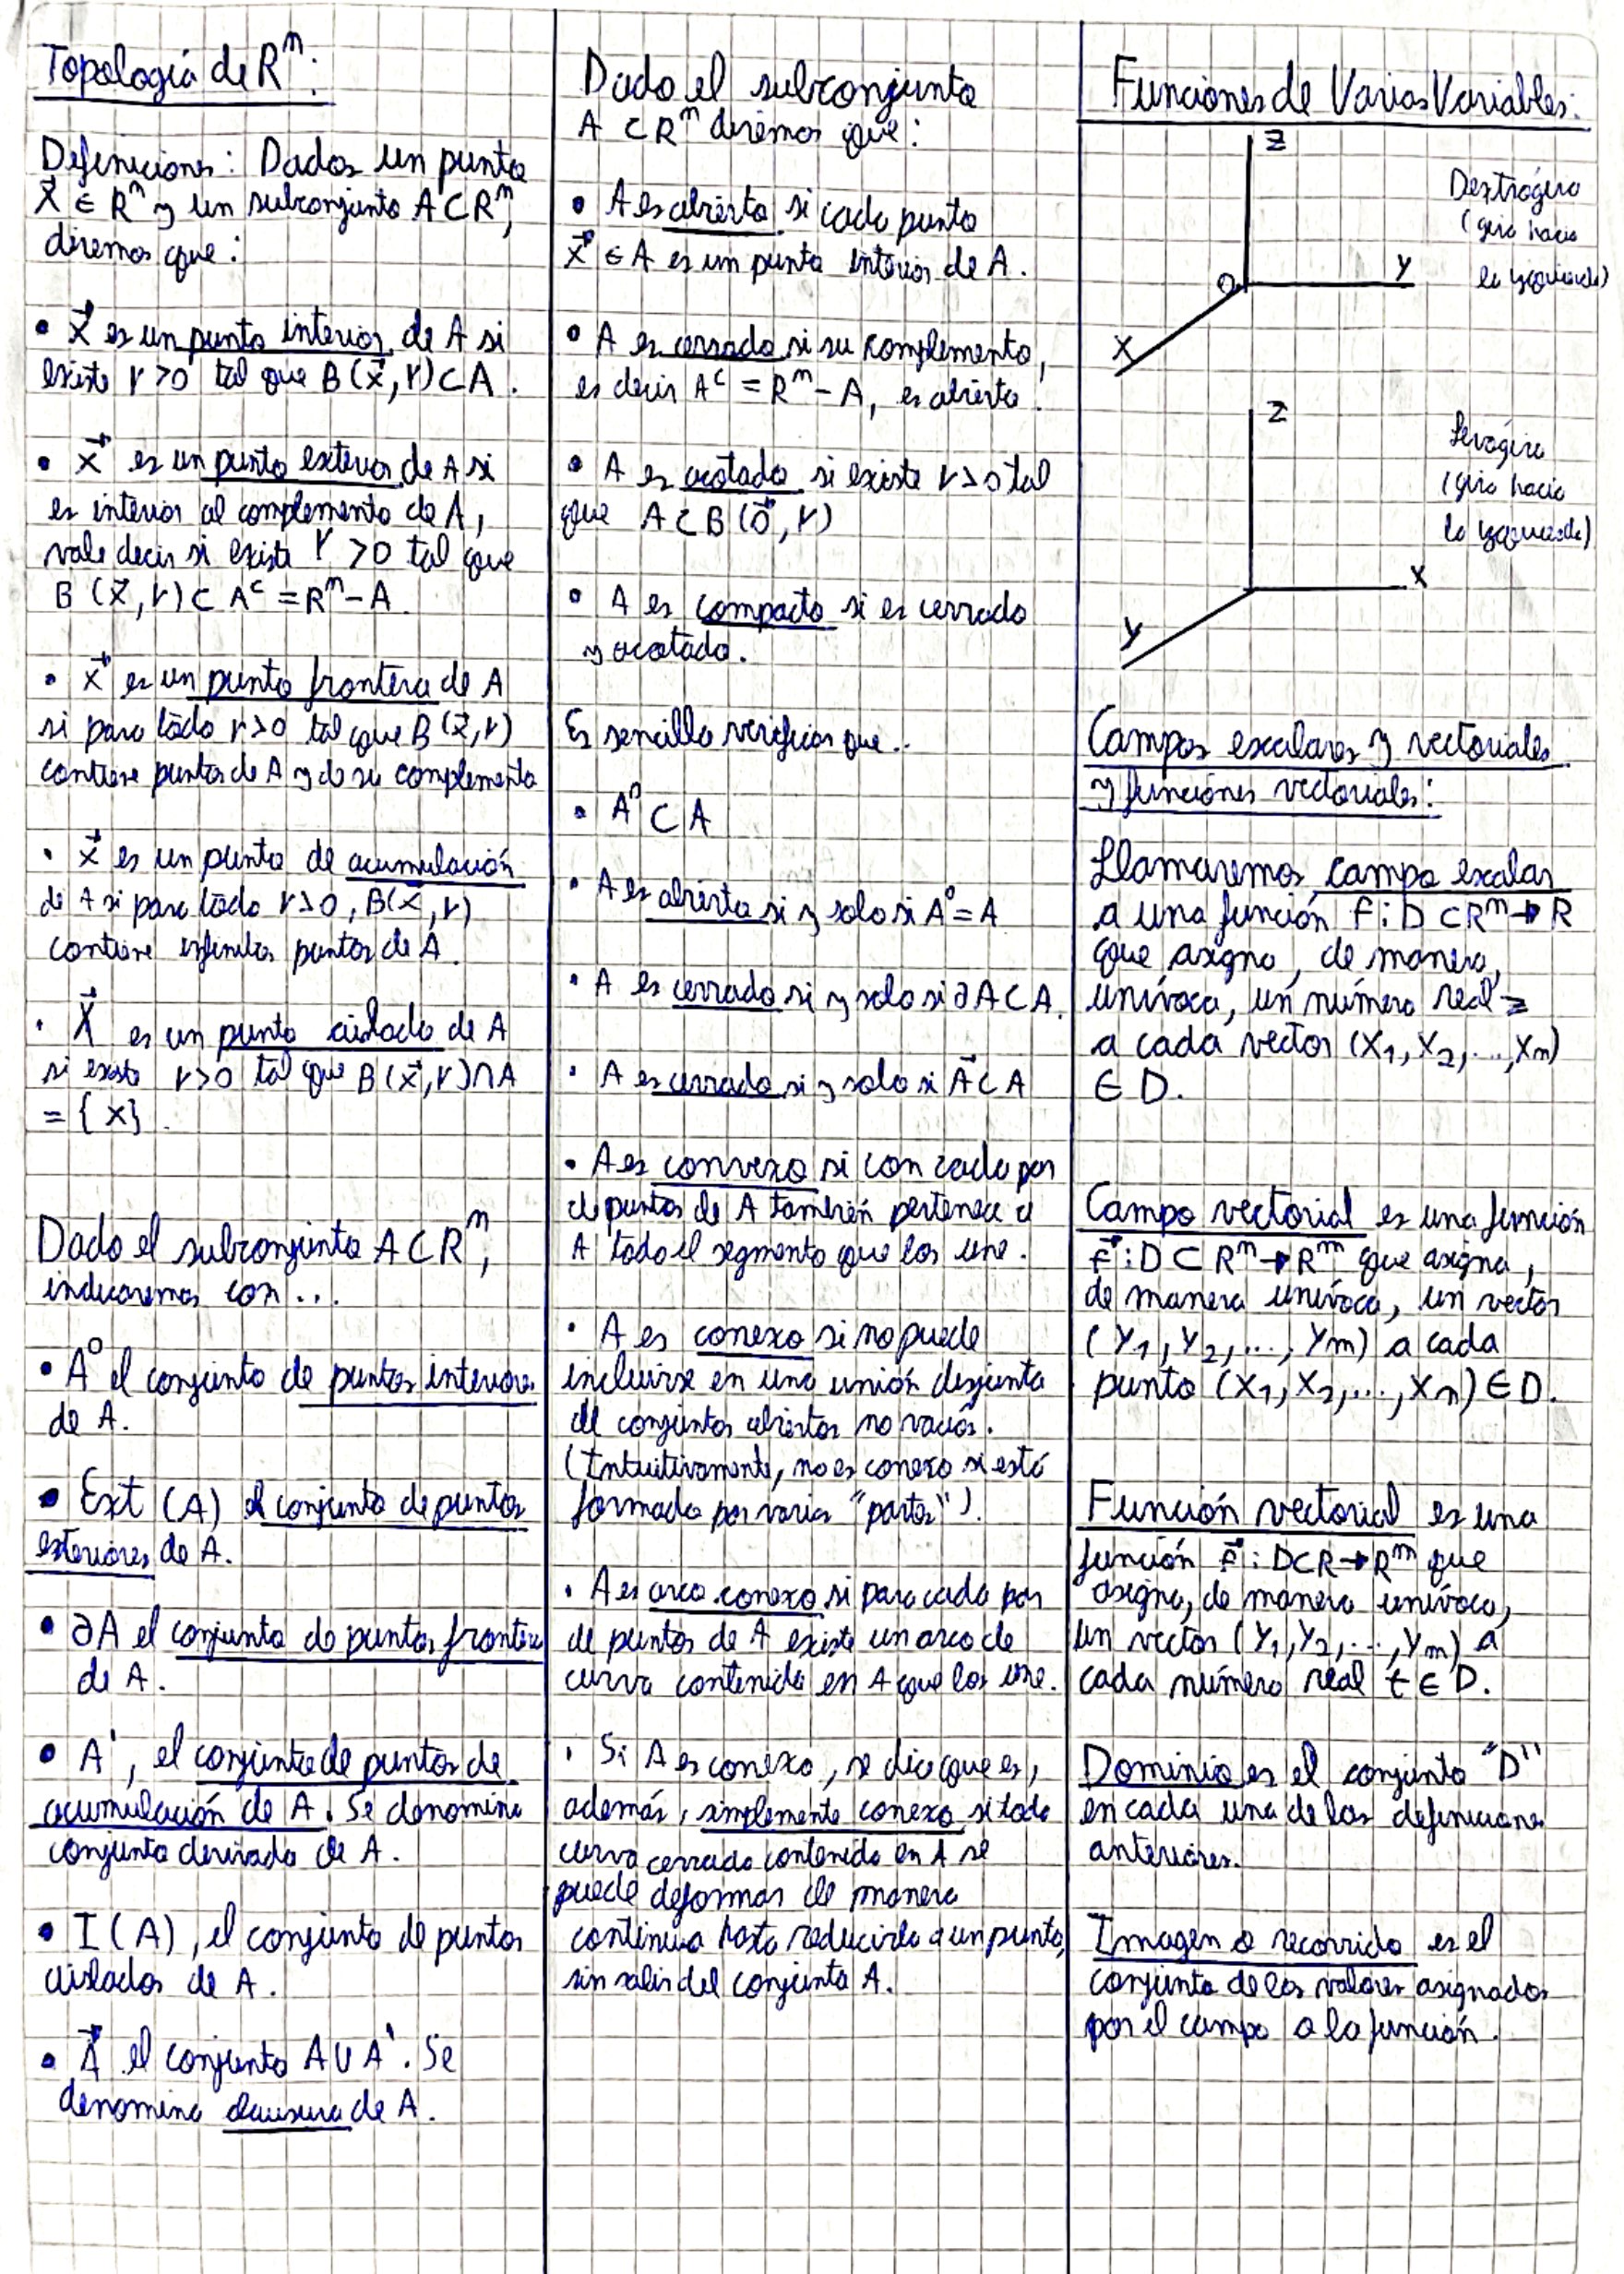 Topología de Rⁿ:
Definiciones: Dados un punto
x⃗ ∈ Rⁿ y un subconjunto A⊂Rⁿ,
diremos que:
• x⃗ es un punto interior de A si
existe r>0 tal que B(x⃗,r)⊂A.
• x⃗ es un punto exterior de A si
es interior al complemento de A,
vale decir si existe r>0 tal que
B(x⃗,r)⊂ Aᶜ=Rⁿ-A.
• x⃗ es un punto frontera de A
si para todo r>0 tal que B(x⃗,r)
contiene puntos de A y de su complemento
• x⃗ es un punto de acumulación
de A si para todo r>0, B(x⃗,r)
contiene infinitos puntos de A.
• x⃗ es un punto aislado de A
si existe r>0 tal que B(x⃗,r)∩A
={x}.
Dado el subconjunto A⊂Rⁿ,
indicaremos con...
• A⁰ el conjunto de puntos interiores
de A.
• Ext (A) el conjunto de puntos
exteriores de A.
• ∂A el conjunto de puntos frontera
de A.
• A', el conjunto de puntos de
acumulación de A. Se denomina
conjunto derivado de A.
• I(A), el conjunto de puntos
aislados de A.
• A⃗ el conjunto A∪A'. Se
denomina clausura de A.
Dado el subconjunto
A ⊂Rⁿ diremos que:
• A es abierto si cada punto
x⃗ ∈A es un punto interior de A.
• A es cerrado si su complemento,
es decir Aᶜ=Rⁿ-A, es abierto.
• A es acotado si existe r>0 tal
que A⊂B(0⃗,r)
• A es compacto si es cerrado
y acotado.
Es sencillo verificar que..
• A⁰⊂A
• A es abierto si y solo si A⁰=A
• A es cerrado si y solo si ∂A⊂A.
• A es cerrado si y solo si A⃗⊂A
• A es convexo si con cada par
de puntos de A también pertenece a
A todo el segmento que los une.
• A es conexo si no puede
incluirse en una unión disjunta
de conjuntos abiertos no vacíos.
(Intuitivamente, no es conexo si está
formado por varias "partes").
• A es arco conexo si para cada par
de puntos de A existe un arco de
curva contenido en A que los une.
• Si A es conexo, se dice que es,
además, simplemente conexo si toda
curva cerrada contenida en A se
puede deformar de manera
continua hasta reducirla a un punto,
sin salir del conjunto A.
Funciones de Varias Variables:
Z
Dextrógiro
(giro hacia
la izquierda)
O
Y
X
Z
Levógiro
(giro hacia
la izquierda)
X
Y
Campos escalares y vectoriales
y funciones vectoriales:
Llamaremos campo escalar
a una función f:D⊂Rⁿ→R
que asigna, de manera
unívoca, un número real z
a cada vector (X₁,X₂,...,Xn)
∈D.
Campo vectorial es una función
F⃗:D⊂Rⁿ→Rᵐ que asigna,
de manera unívoca, un vector
(Y₁,Y₂,...,Ym) a cada
punto (X₁,X₂,...,Xn)∈D.
Función vectorial es una
función F⃗:D⊂R→Rᵐ que
asigna, de manera unívoca,
un vector (Y₁,Y₂,...,Ym) a
cada número real t∈D.
Dominio es el conjunto "D"
en cada una de las definiciones
anteriores.
Imagen o recorrido es el
conjunto de los valores asignados
por el campo o la función.